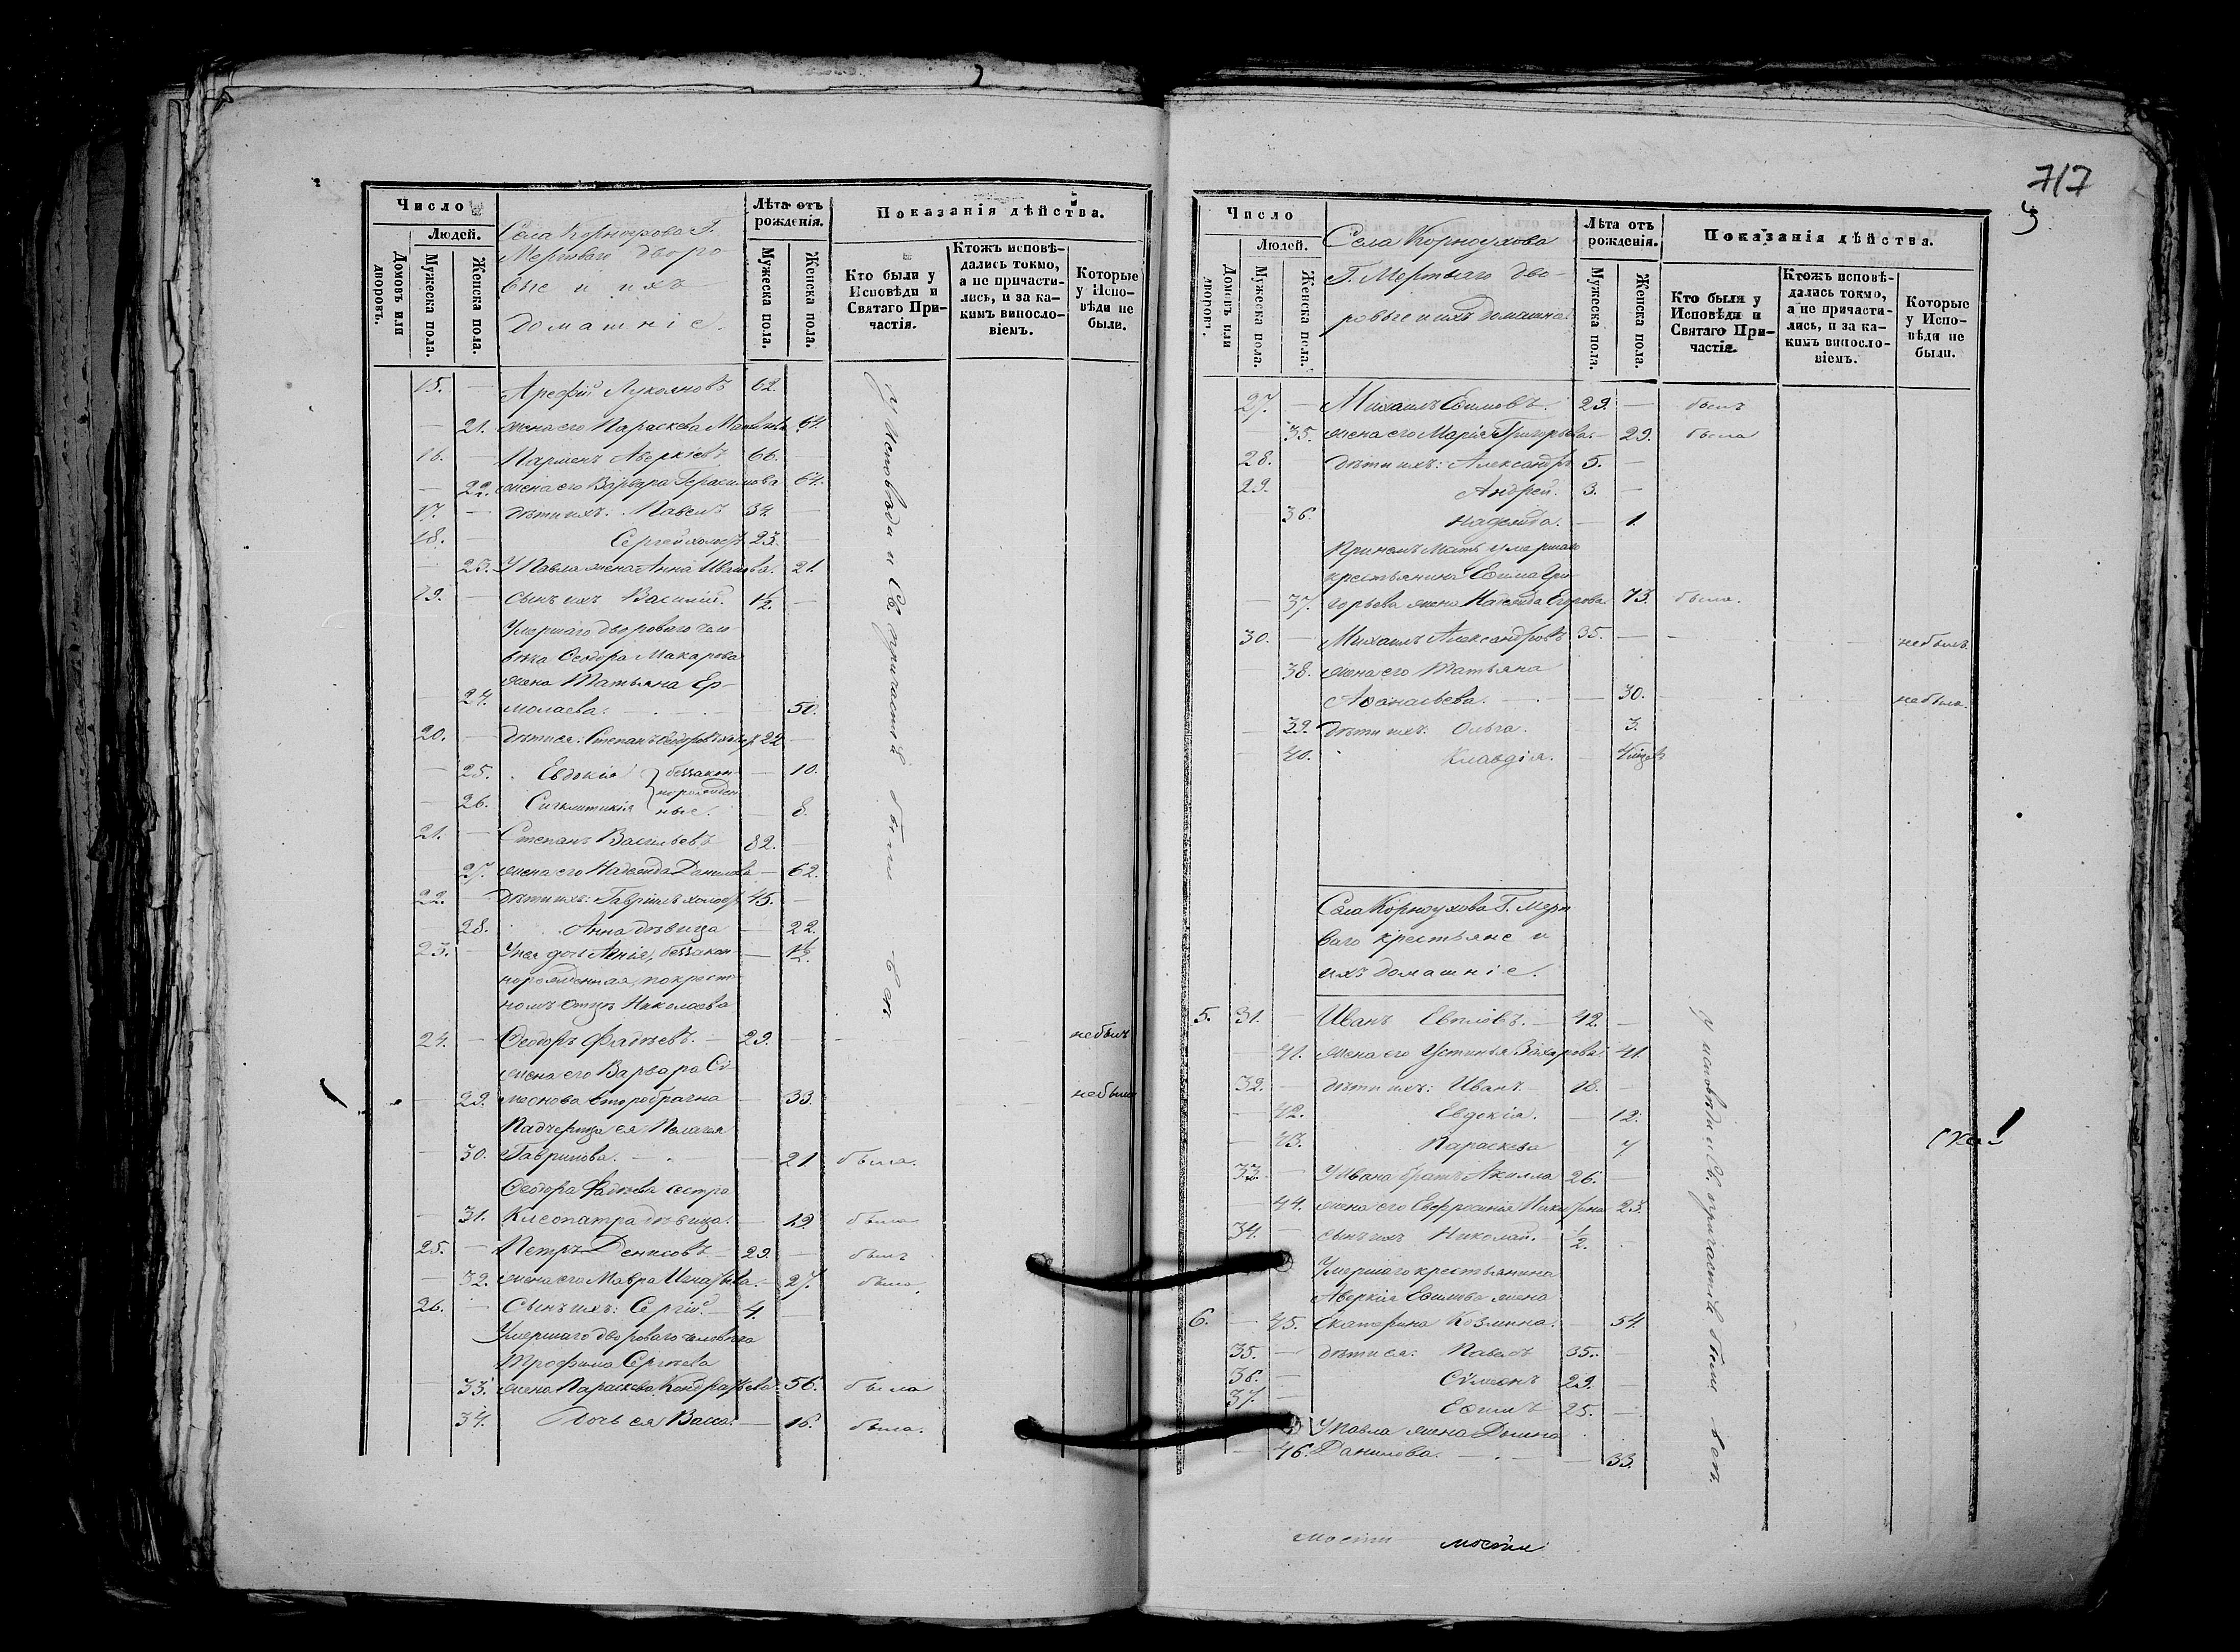 Число
Людей.
Домовъ или дворовъ.
Мужеска пола.
Женска пола.
Села Корноухова Г.
Мертваго дворо
вые и ихъ
домашніе.
Лѣта отъ рожденія.
Мужеска пола.
Женска пола.
Показанія дѣйства.
Кто были у Исповѣди и Святаго При-
частія.
Ктожъ исповѣ-
дались токмо,
а не причасти-
лись, и за ка-
кимъ винosло-
віемъ.
Которые
у Испо-
вѣди не
были.
15. — Арефій Лукояновъ 62.
— 21. жена его Параскева 64.
16. — Парменъ Аверкіевъ 66. —
— 22. жена его Варвара Герасимова 64.
17. — дѣти ихъ: Павелъ 34. —
18. — Сергей холостъ 23. —
— 23. У Павла жена Анна Иванова. 21.
19. — сынъ ихъ Василій. 1½. —
Умершаго двороваго чело
вѣка Ѳеодора Макарова
жена Татьяна Ер-
— 24. молаева. — 50.
20. — дѣти ея: Степанъ Ѳедоровъ 22 —
— 25. Евдокія беззакон- — 10.
— 26. Синклитикія норожден
ные. — 8.
21. — Степанъ Васильевъ 82. —
— 27. жена его Надежда Данилова — 62.
22. — дѣти ихъ: Гавріилъ холост 45. —
— 28. Анна дѣвица — 22.
23. — У нея беззакон- — 1½.
норожденная, по крест
номъ отцѣ Николаева
24. — Ѳеодоръ Фадѣевъ. — 29. — небылъ
жена его Варвара Сѵ
— 29. меонова второбрачна — 33. небыла
Падчерица ея Пелагея
— 30. Гаврилова. — 21. была.
Ѳеодора Фадѣева сестра
— 31. Клеопатра дѣвица. — 19. была
25. — Петръ Денисовъ — 29. — былъ
— 32. жена его Мавра Игнатьева. — 27. была.
26. — Сынъ ихъ: Сергій. — 4. —
Умершаго двороваго человѣка
Трофима Сергѣева
— 33. жена Параскева Кондратьева. 56. была
34. Дочь ея Васса. — 16. была.
у Исповѣди и Св. причастія были всѣ
717
Число
Людей.
Домовъ или дворовъ.
Мужеска пола.
Женска пола.
Села Корноухова
Г. Мертваго дво-
ровые и ихъ домашніе
Лѣта отъ рожденія.
Мужеска пола.
Женска пола.
Показанія дѣйства.
Кто были у
Исповѣди и
Святаго При-
частія.
Ктожъ исповѣ-
дались токмо,
а не причасти-
лись, и за ка-
кимъ винosло-
віемъ.
Которые
у Испо-
вѣди не
были.
27. — Михаилъ Ефимовъ. 29. — былъ
— 35. жена его Марія Григорьева. — 29. была
28. дѣти ихъ: Александръ 5. —
29. Андрей. 3. —
— 36. Надежда. — 1.
При немъ мать умершаго
крестьянина Ефима Гри-
— 37. горьева жена Надежда Егорова. 73. была.
30. — Михаилъ Александровъ 35. — небылъ.
— 38. жена его Татьяна
Аѳанасьева. — 30. небыла.
— 39. дѣти ихъ: Ольга. — 3.
— 40. Клавдія.
Села Корноухова Г. Мерт
ваго крестьяне и
ихъ домашніе.
5. 31. — Иванъ Ефимовъ. — 42. —
— 41. жена его Устинья Захарова. 41.
32. — дѣти ихъ: Иванъ — 18. —
— 42. Евдокія. — 12.
— 43. Параскева 7
33. — У Ивана братъ Акилла 26. —
— 44. жена его Евфросинія 23.
34. — сынъ ихъ Николай. — ½.
Умершаго крестьянина
Аверкія Ефимова жена
6. — 45. Екатерина Козмина. — 54.
35. — дѣти ея: Павелъ 35. —
36. — Сѵмеонъ 29. —
37. — Ефимъ 25. —
У Павла жена Домна
— 46. Данилова. — 33.
у исповѣди и Св. причастія были всѣ.
мости мости